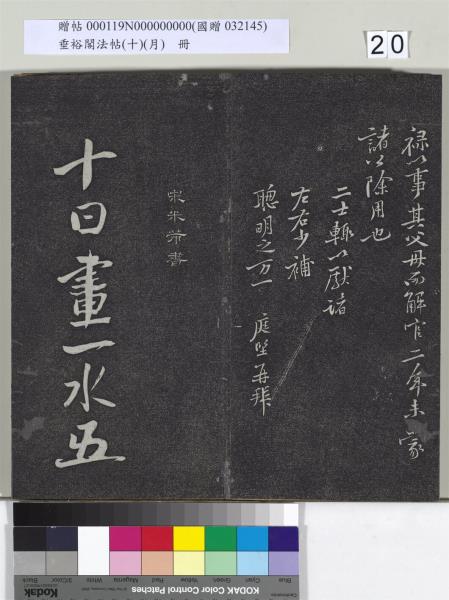 贈帖 000119N000000000(國贈 032145)
垂裕閣法帖(十)(月) 冊
20
祿以事其父母而解官二年未蒙
諸以除用也
二士輒以獻諸
左右少補
聰明之万一 庭堅再拜
宋米芾書
十日畫一水五
Blue Cyan Green Yellow Red Magenta White 3/Color Black
KODAK Color Control Patches
Kodak